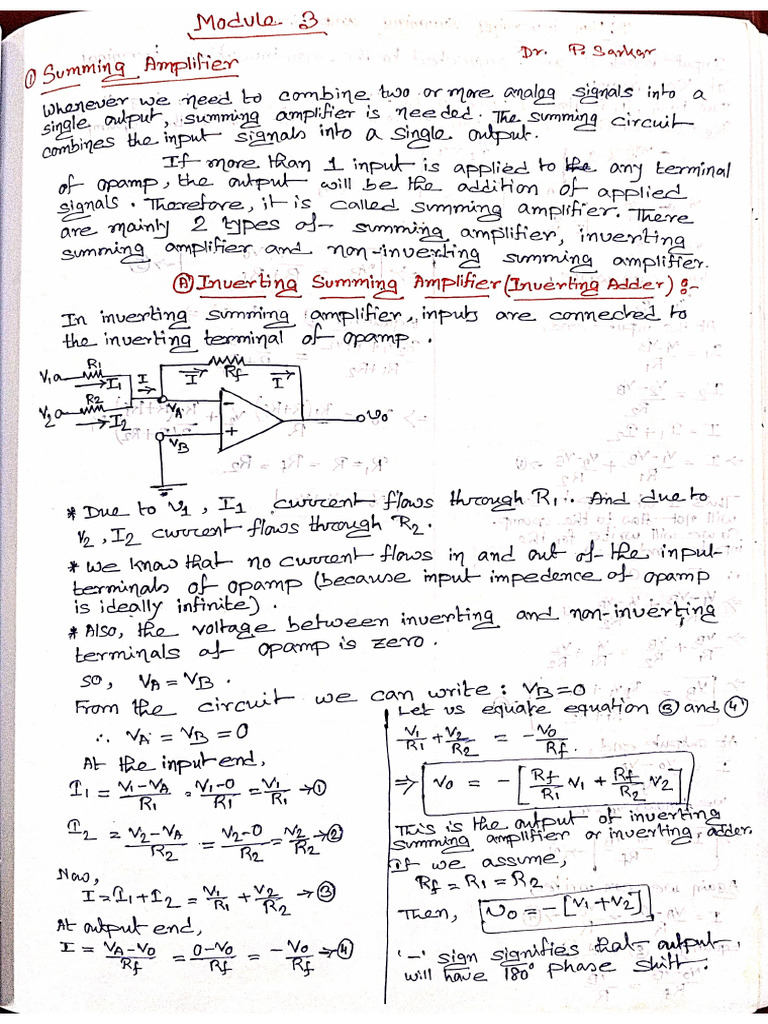 Module 3
Dr. P. Sarkar
① Summing Amplifier
Whenever we need to combine two or more analog signals into a
single output, summing amplifier is needed. The summing circuit
combines the input signals into a single output.
If more than 1 input is applied to the any terminal
of opamp, the output will be the addition of applied
signals. Therefore, it is called summing amplifier. There
are mainly 2 types of summing amplifier, inverting
summing amplifier and non-inverting summing amplifier.
Ⓐ Inverting Summing Amplifier (Inverting Adder) :-
In inverting summing amplifier, inputs are connected to
the inverting terminal of opamp.
V1 R1 I1 I I Rf I
V2 R2 I2 VA - V0
VB +
* Due to V1, I1 current flows through R1. And due to
V2, I2 current flows through R2.
* We know that no current flows in and out of the input
terminals of opamp (because input impedence of opamp
is ideally infinite).
* Also, the voltage between inverting and non-inverting
terminals of opamp is zero.
So, VA = VB.
From the circuit we can write: VB = 0
∴ VA = VB = 0
At the input end,
I1 = (V1-VA)/R1 = (V1-0)/R1 = V1/R1 → ①
I2 = (V2-VA)/R2 = (V2-0)/R2 = V2/R2 → ②
Now,
I = I1 + I2 = V1/R1 + V2/R2 → ③
At output end,
I = (VA-V0)/Rf = (0-V0)/Rf = -V0/Rf → ④
Let us equate equation ③ and ④
V1/R1 + V2/R2 = -V0/Rf.
⇒ V0 = - [Rf/R1 V1 + Rf/R2 V2]
This is the output of inverting
summing amplifier or inverting adder.
If we assume,
Rf = R1 = R2
Then, V0 = - [V1 + V2]
'-' sign signifies that output
will have 180° phase shift.